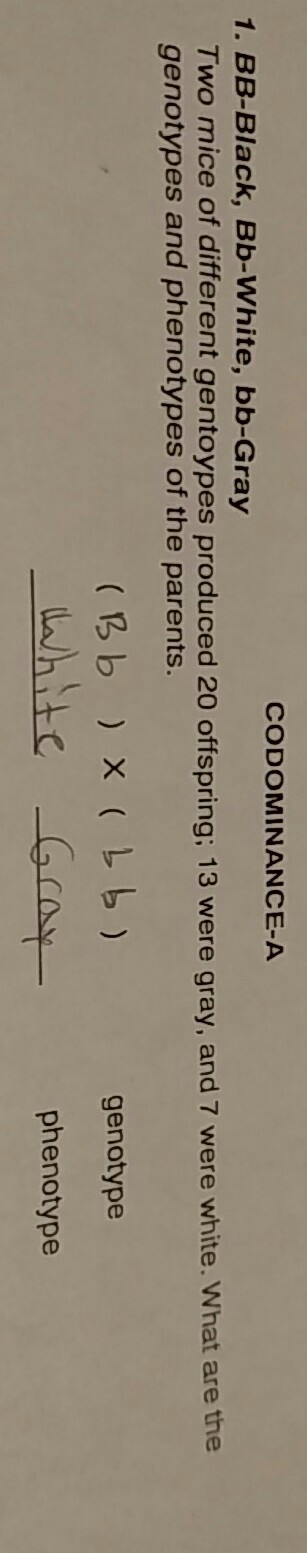 CODOMINANCE-A
1. BB-Black, Bb-White, bb-Gray
Two mice of different gentoypes produced 20 offspring; 13 were gray, and 7 were white. What are the
genotypes and phenotypes of the parents.
( B b ) X ( b b ) genotype
White Gray phenotype